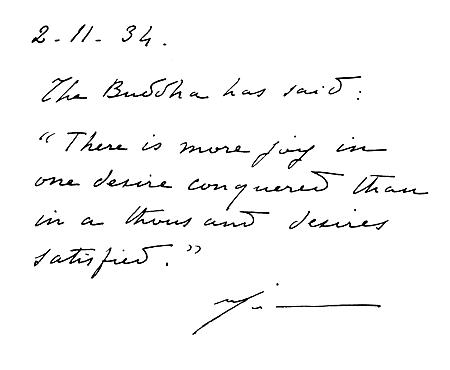 2-11-34.
The Buddha has said:
“There is more joy in
one desire conquered than
in a thousand desires
satisfied.”